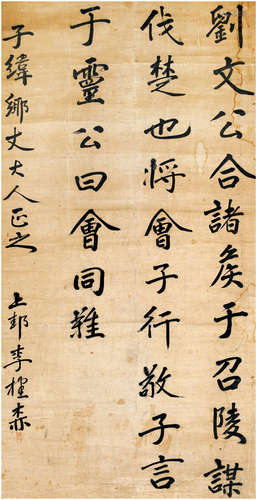 劉文公合諸矦于召陵謀
伐楚也將會子行敬子言
于靈公曰會同難
子緯鄉丈大人正之
上邽李權森